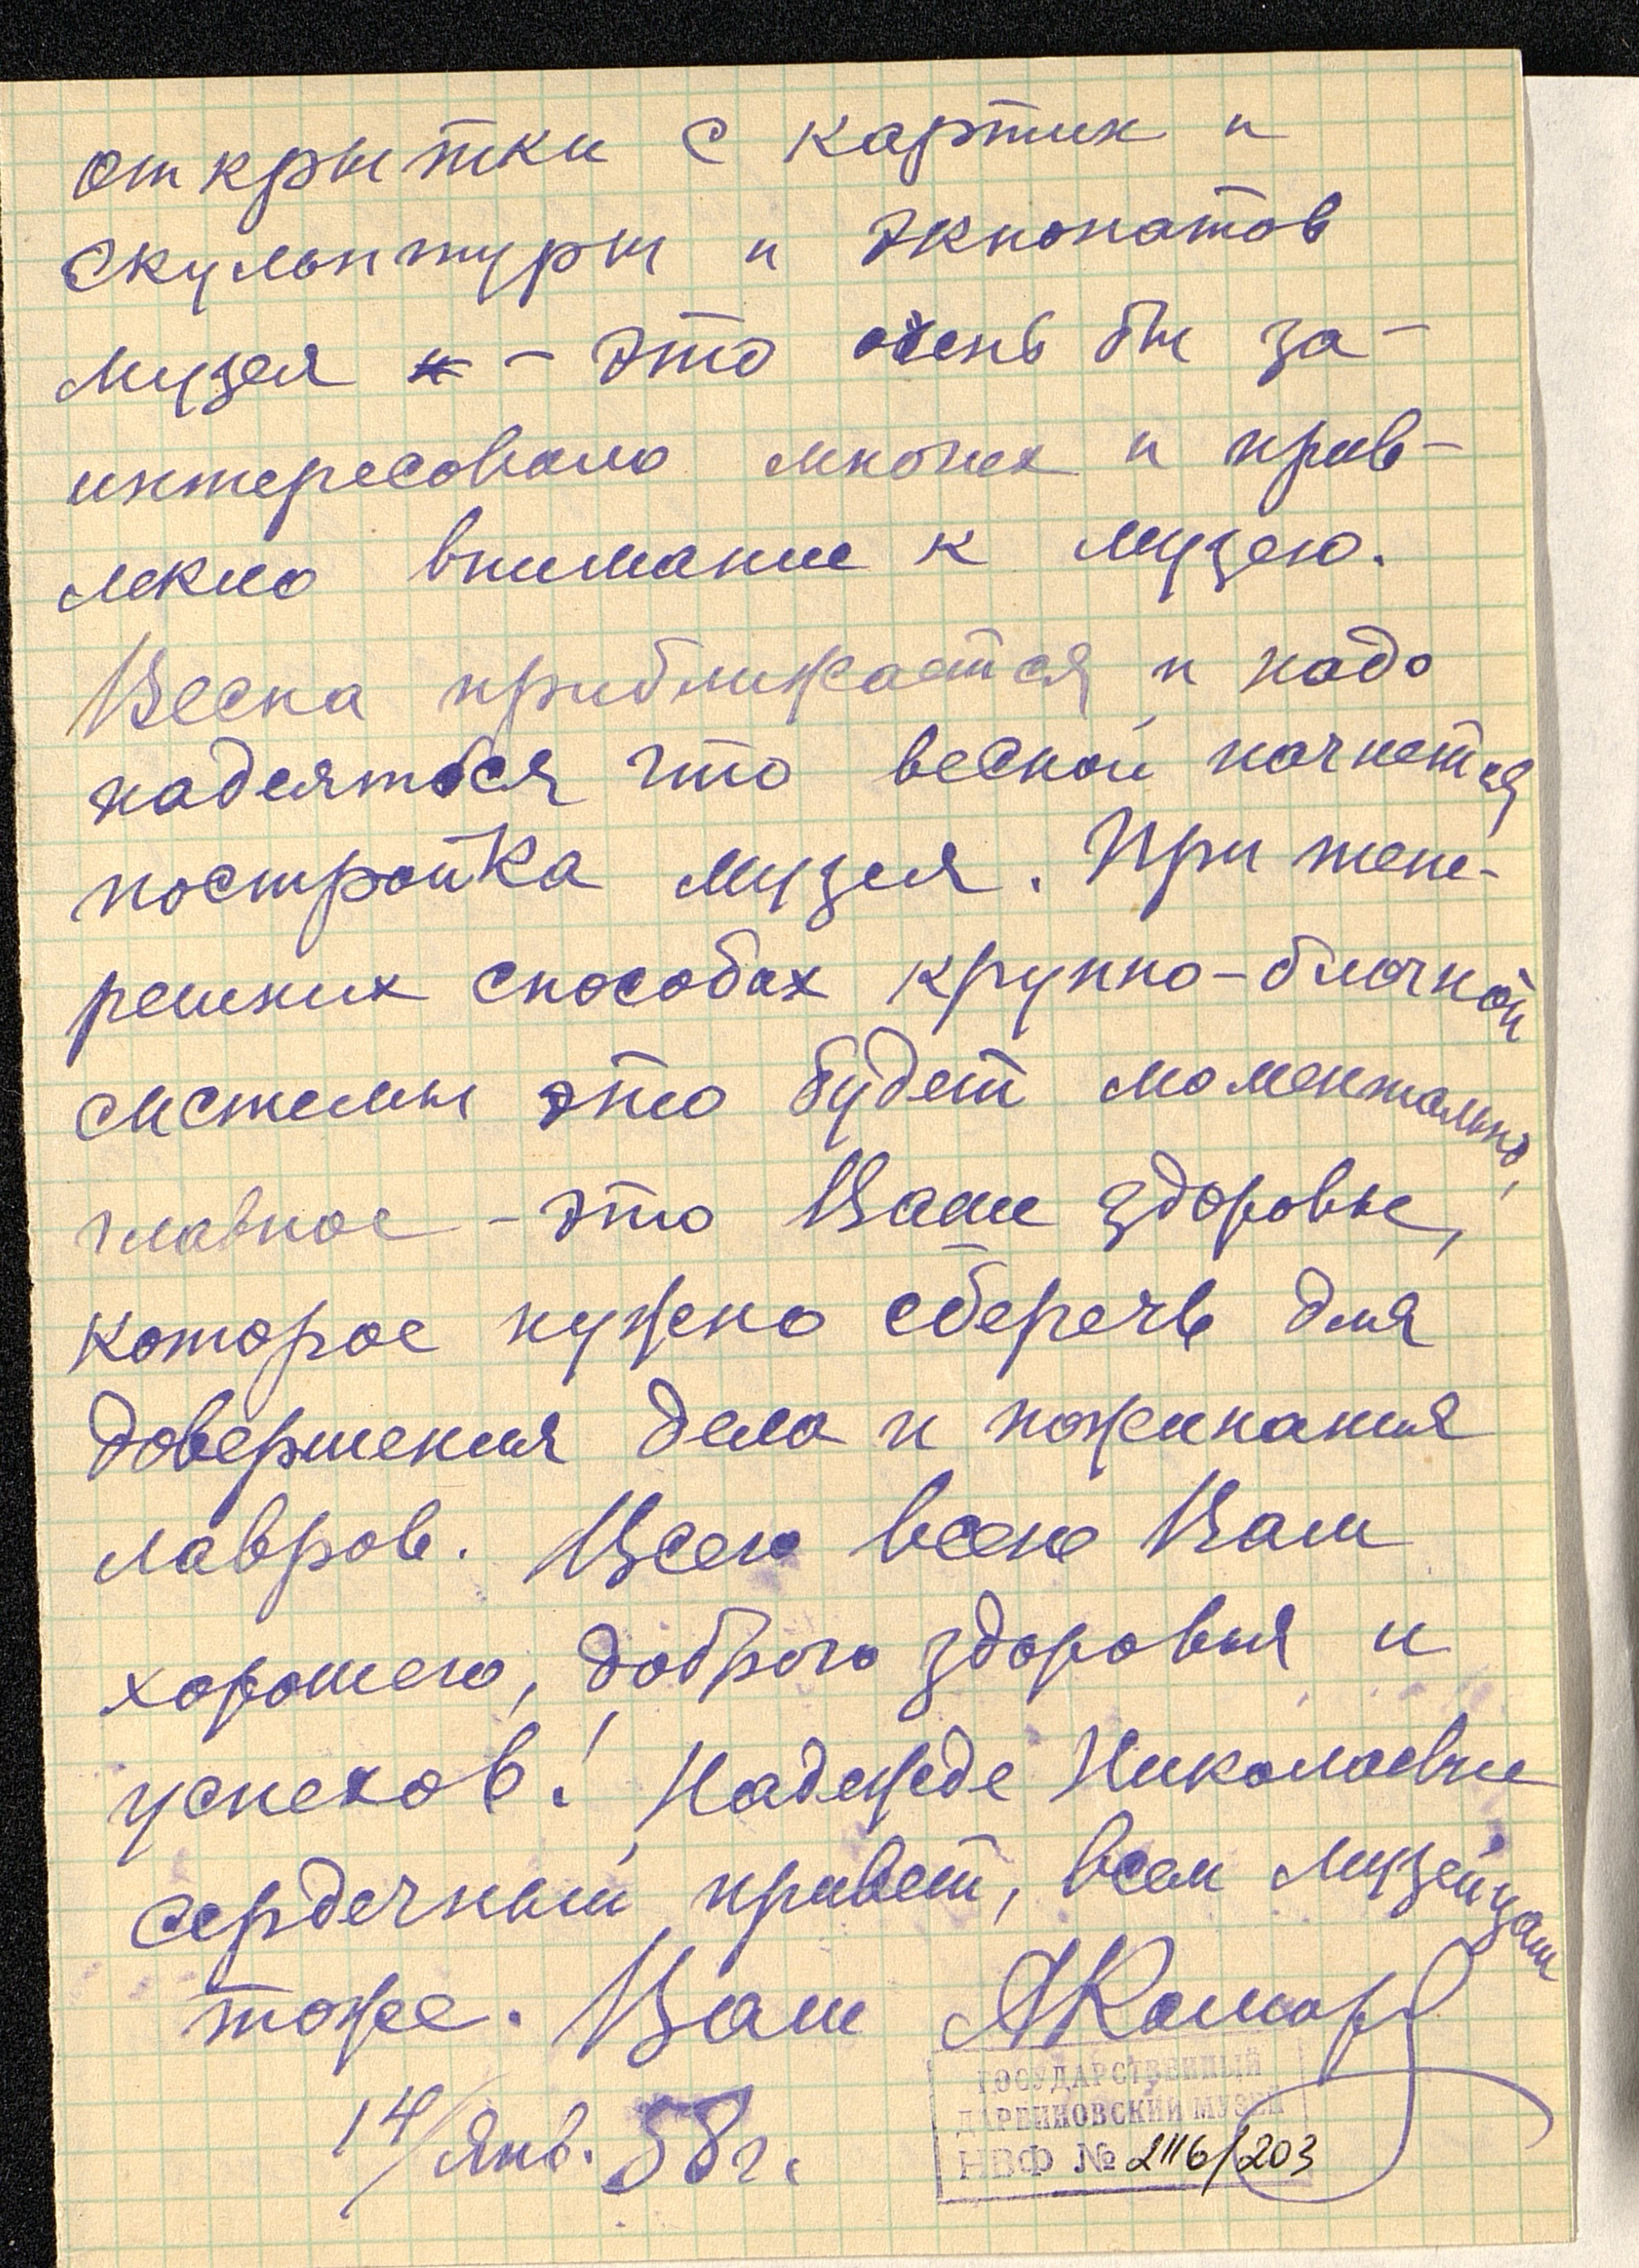 открытки с картин и
скульптуры и экпонатов
музея - это очень бы за-
интересовало многих и прив-
лекло внимание к музею.
Весна приближается и надо
надеяться что весной начнется
постройка музея. При тепе-
решних способах крупно-блочной
системы это будет моментально,
главное - это Ваше здоровье,
которое нужно сберечь для
довершения дела и пожинания
лавров. Всего всего Вам
хорошего, доброго здоровья и
успехов! Надежде Николаевне
сердечный привет, всем музейцам
тоже. Ваш АКомаров
14/янв. 58 г.
ГОСУДАРСТВЕННЫЙ
ДАРВИНОВСКИЙ МУЗЕЙ
НВФ № 2116/203